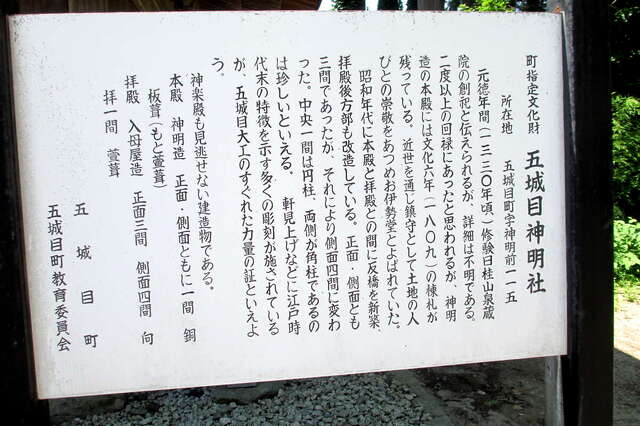 町指定文化財　五城目神明社
所在地　五城目町字神明前一一五
元徳年間(一三三〇年頃)修験日桂山泉蔵
院の創祀と伝えられるが、詳細は不明である。
二度以上の回禄にあったと思われるが、神明
造の本殿には文化六年(一八〇九)の棟札が
残っている。近世を通じ鎮守として土地の人
びとの崇敬をあつめお伊勢堂とよばれていた。
昭和年代に本殿と拝殿との間に反橋を新築、
拝殿後方部も改造している。正面・側面とも
三間であったが、それにより側面四間に変わ
った。中央一間は円柱、両側が角柱であるの
は珍しいといえる。軒見上げなどに江戸時
代末の特徴を示す多くの彫刻が施されている
が、五城目大工のすぐれた力量の証といえよ
う。
神楽殿も見逃せない建造物である。
本殿　神明造　正面・側面ともに一間　銅
板葺(もと萱葺)
拝殿　入母屋造　正面三間　側面四間　向
拝一間　萱葺
五城目町
五城目町教育委員会